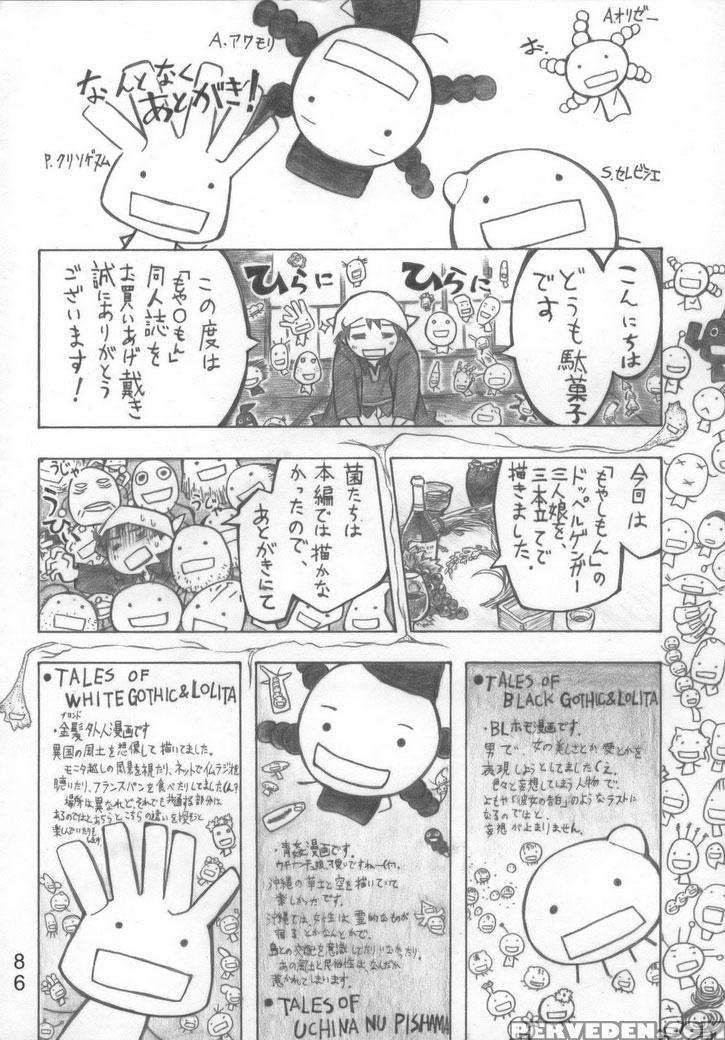 A.オリゼー
お。
A.アワモリ
なんとなく
あとがき!
P.クリソゲヌム
S.セレビシエ
こんにちは
どうも駄菓子
です
ひらに
ひらに
この度は
「もや〇もん」
同人誌を
お買いあげ戴き
誠にありがとう
ございます!
今回は
「もやしもん」の
ドッペルゲンガー
三人娘を、
三本立てで
描きました。
菌たちは
本編では描かな
かったので、
あとがきにて
うじゃ
うじゃ
•TALES OF
WHITE GOTHIC&LOLITA
ブロンド
・金髪外人漫画です
異国の風土を想像して描いてました。
モニタ越しの風景を視たり、ネットで
聴いたり、フランスパンを食べたりしてました
場所は異なれど、それでも共通する部分は
あるのではと
・青姦漫画です。
沖縄の草土と空を描いていて
楽しかったです。
沖縄では、女性は霊的なものが
宿るとかなんとかで。
島との交配を意識してたり
あの風土と民俗性はなんだか
惹かれてしまいます。
•TALES OF
UCHINA NU PISHAMA
•TALES OF
BLACK GOTHIC&LOLITA
・BLホモ漫画です。
男で、女の美しさとか愛とかを
表現しようとしてました
色々と妄想してしまう人物で
よもや「彼女の告白」のようなラストに
なるのではと、
妄想が止まりません。
86
PERVEDEN.COM